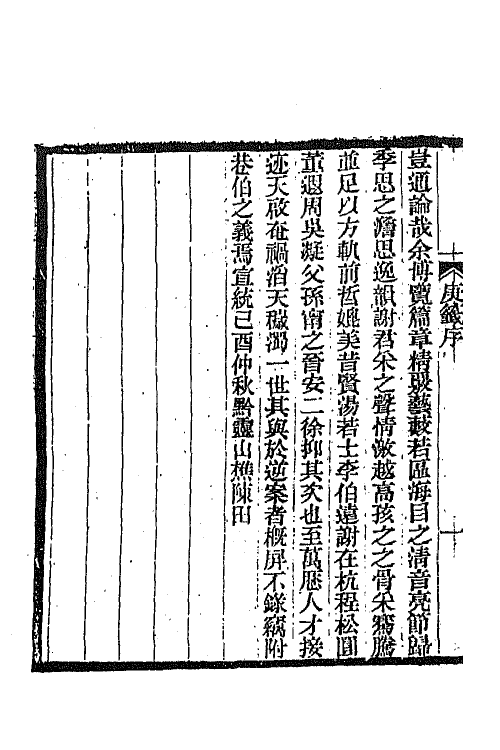 庚籤序
豈通論哉余博覽篇章精聚藝藪若區海目之清音亮節歸
季思之澹思逸韻謝君采之聲情激越高孩之之骨采騫騰
並足以方軌前哲媲美昔賢湯若士李伯遠謝在杭程松圓
董遐周吳凝父孫甯之晉安二徐抑其次也至萬厯人才接
迹天啟奄禍滔天穢濁一世其與於逆案者概屏不錄竊附
巷伯之義焉宣統己酉仲秋黔靈山樵陳田